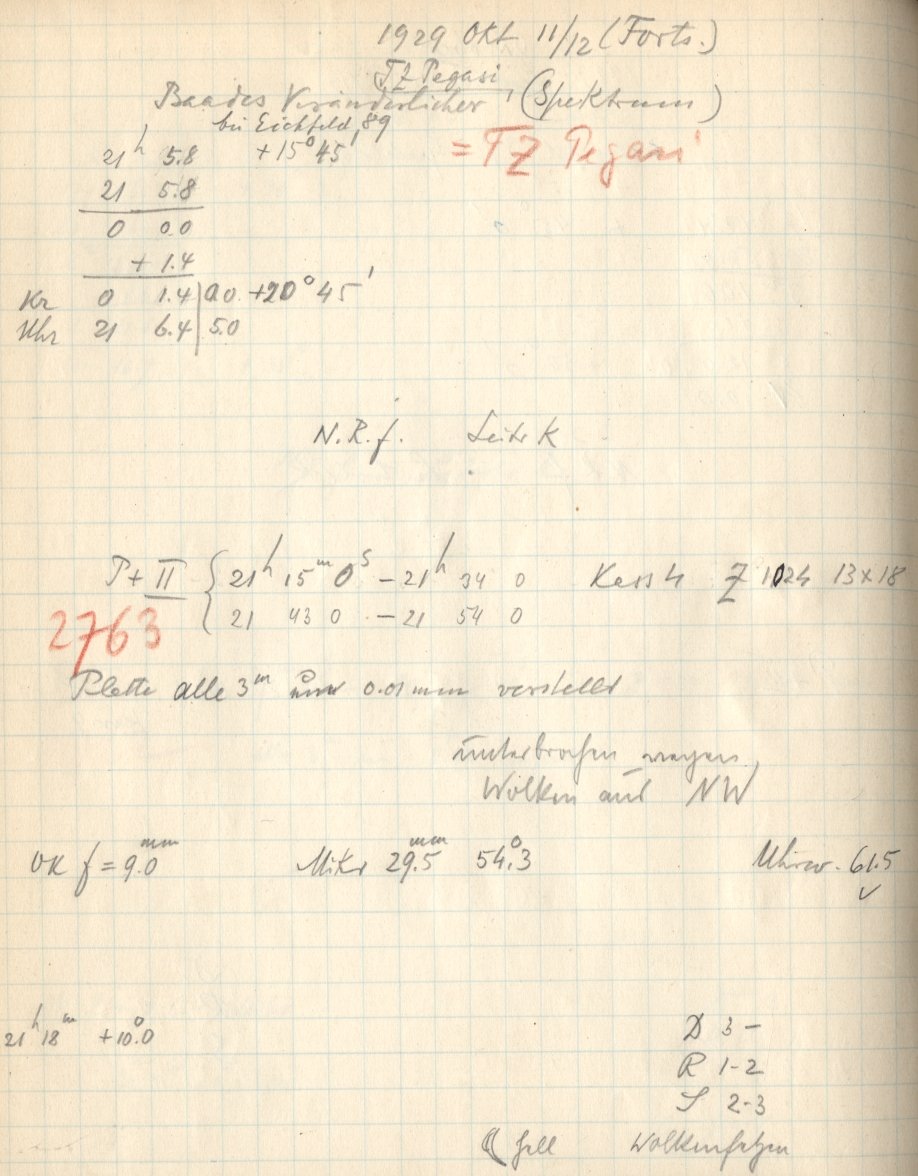 1929 Okt 11/12 (Forts.)
TZ Pegasi
Baades Veränderlicher, (Spektrum)
bei Eichfeld 89
21h 5.8 +15° 45'
= TZ Pegasi
21 5.8
0 0.0
+ 1.4
Kr 0 1.4 | 0.0 +20° 45'
Uhr 21 6.4 | 5.0
N.R.f. Leitr K
P + II { 21h 15m 0s – 21h 34 0 Kass 4 Z 1024 13×18
21 43 0 – 21 54 0
2763
Platte alle 3m um 0.01 mm verstellt
unterbrochen wegen
Wolken aus NW
OK f = 9.0mm Mikr 29.5mm 54°.3 Uhrw. 61.5
✓
21h 18m +10°.0
D 3–
R 1-2
S 2-3
☾ hell Wolkenfetzen